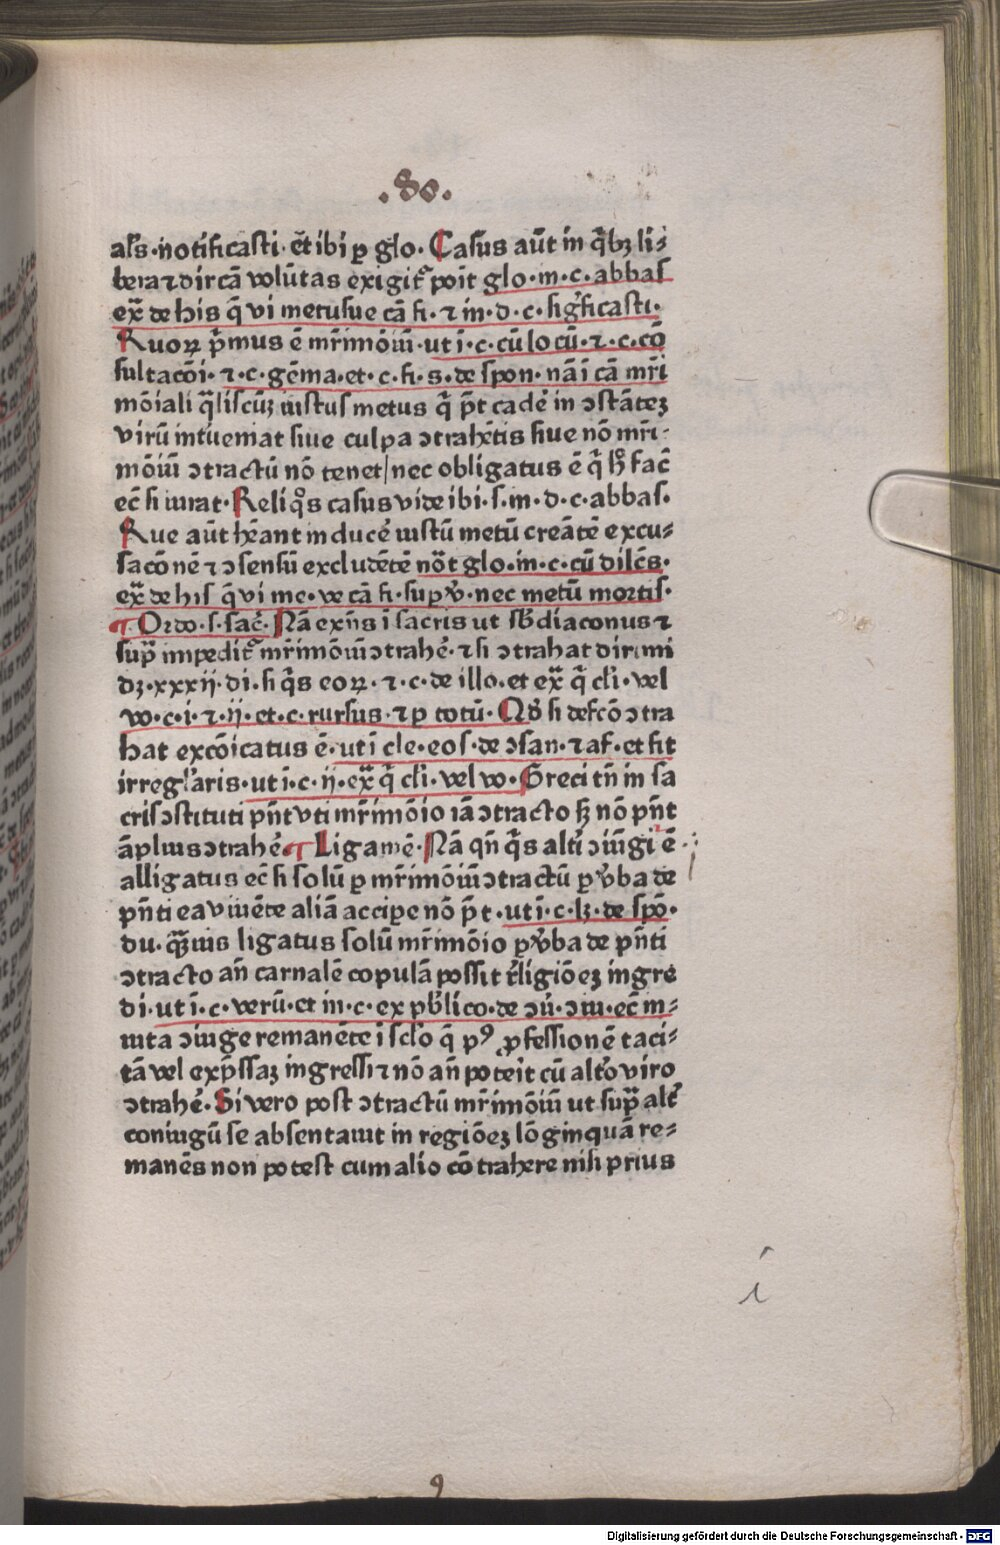 .80.
al's·notificasti·et̄ ibi ꝑ glo· Casus aūt in q̄bꝫ li⸗
bera ⁊ dircā volūtas exigit᷑ poīt glo·in·c·abbas
ex̄ de his q̄ vi metusue cā fi·⁊ in·d·c·sigīficasti·
Quoꝝ p̄mus ē mr̄imōiū·ut ī·c·cū locū·⁊·c·cō
sultacōi·⁊·c·gēma·et·c·fi·s·de spon·nā ī cā mr̄i
mōiali q̄liscūꝫ iustus metus q̄ p̄t cadē in ↄstātēꝫ
virū intueniat siue culpa ↄtrahētis siue nō mr̄i⸗
mōiū ↄtractū nō tenet/nec obligatus ē q̄ h̄ fac̄
ec̄ si iurat·Reliq̊s casus vide ibi·s·in·d·c·abbas·
Que aūt hēant inducē iustū metū creātē excu⸗
sacōnē ⁊ ↄsensū excludētē nōt glo·in·c·cū dilc̄s·
ex̄ de his q̄ vi me·ve cā fi·suꝑ v̄·nec metū mortis·
¶ Ordo·s·sac̄· Nā exn̄s ī sacris ut sb̄diaconus ⁊
sup̄ impedit᷑ mr̄imōiū ↄtrahē·⁊ si ↄtrahat dirimi
dꝫ·xxxij·di·si q̄s eoꝝ·⁊·c·de illo·et ex̄ q̄ cli·vel
vo·c·i·⁊·ij·et·c·rursus·⁊ ꝑ totū· Qđ si defcō ↄtra
hat excōicatus ē·ut ī cle·eos·de ↄsan·⁊ af·et fit
irreglaris·ut ī·c·ij·ex̄ q̄ cli·vel vo·Greci tn̄ in sa
cris ↄstituti pn̄t vti mr̄imōio iā ↄtracto sꝫ nō pn̄t
āplius ↄtrahē ¶ Ligamē·Nā qn̄ q̄s alt̄i ↄiūgi ē
alligatus ec̄ si solū ꝑ mr̄imōiū ↄtractū ꝑ v̄ba de
pn̄ti ea viuēte aliā accipe nō p̄t·ut ī·c·lꝫ·de spō·
du·q̄ꝫuis ligatus solū mr̄imōio ꝑ v̄ba de pn̄ti
ↄtracto an̄ carnalē copulā possit r̄ligiōeꝫ ingre
di·ut ī·c·verū·et in·c·ex pb̄lico·de ↄū·ↄiu·ec̄ in⸗
uita ↄiuge remanēte ī sclo q̄ pꝰ ꝓfessionē taci⸗
tā vel exp̄ssaꝫ ingressi ⁊ nō an̄ poteīt cū alt̊o viro
ↄtrahē·Si vero post ↄtractū mr̄imōiū ut sup̄ alt᷑
coniugū se absentauit in regiōeꝫ lōginquā re⸗
manēs non potest cum alio cōtrahere nisi prius
i
9
Digitalisierung gefördert durch die Deutsche Forschungsgemeinschaft - DFG